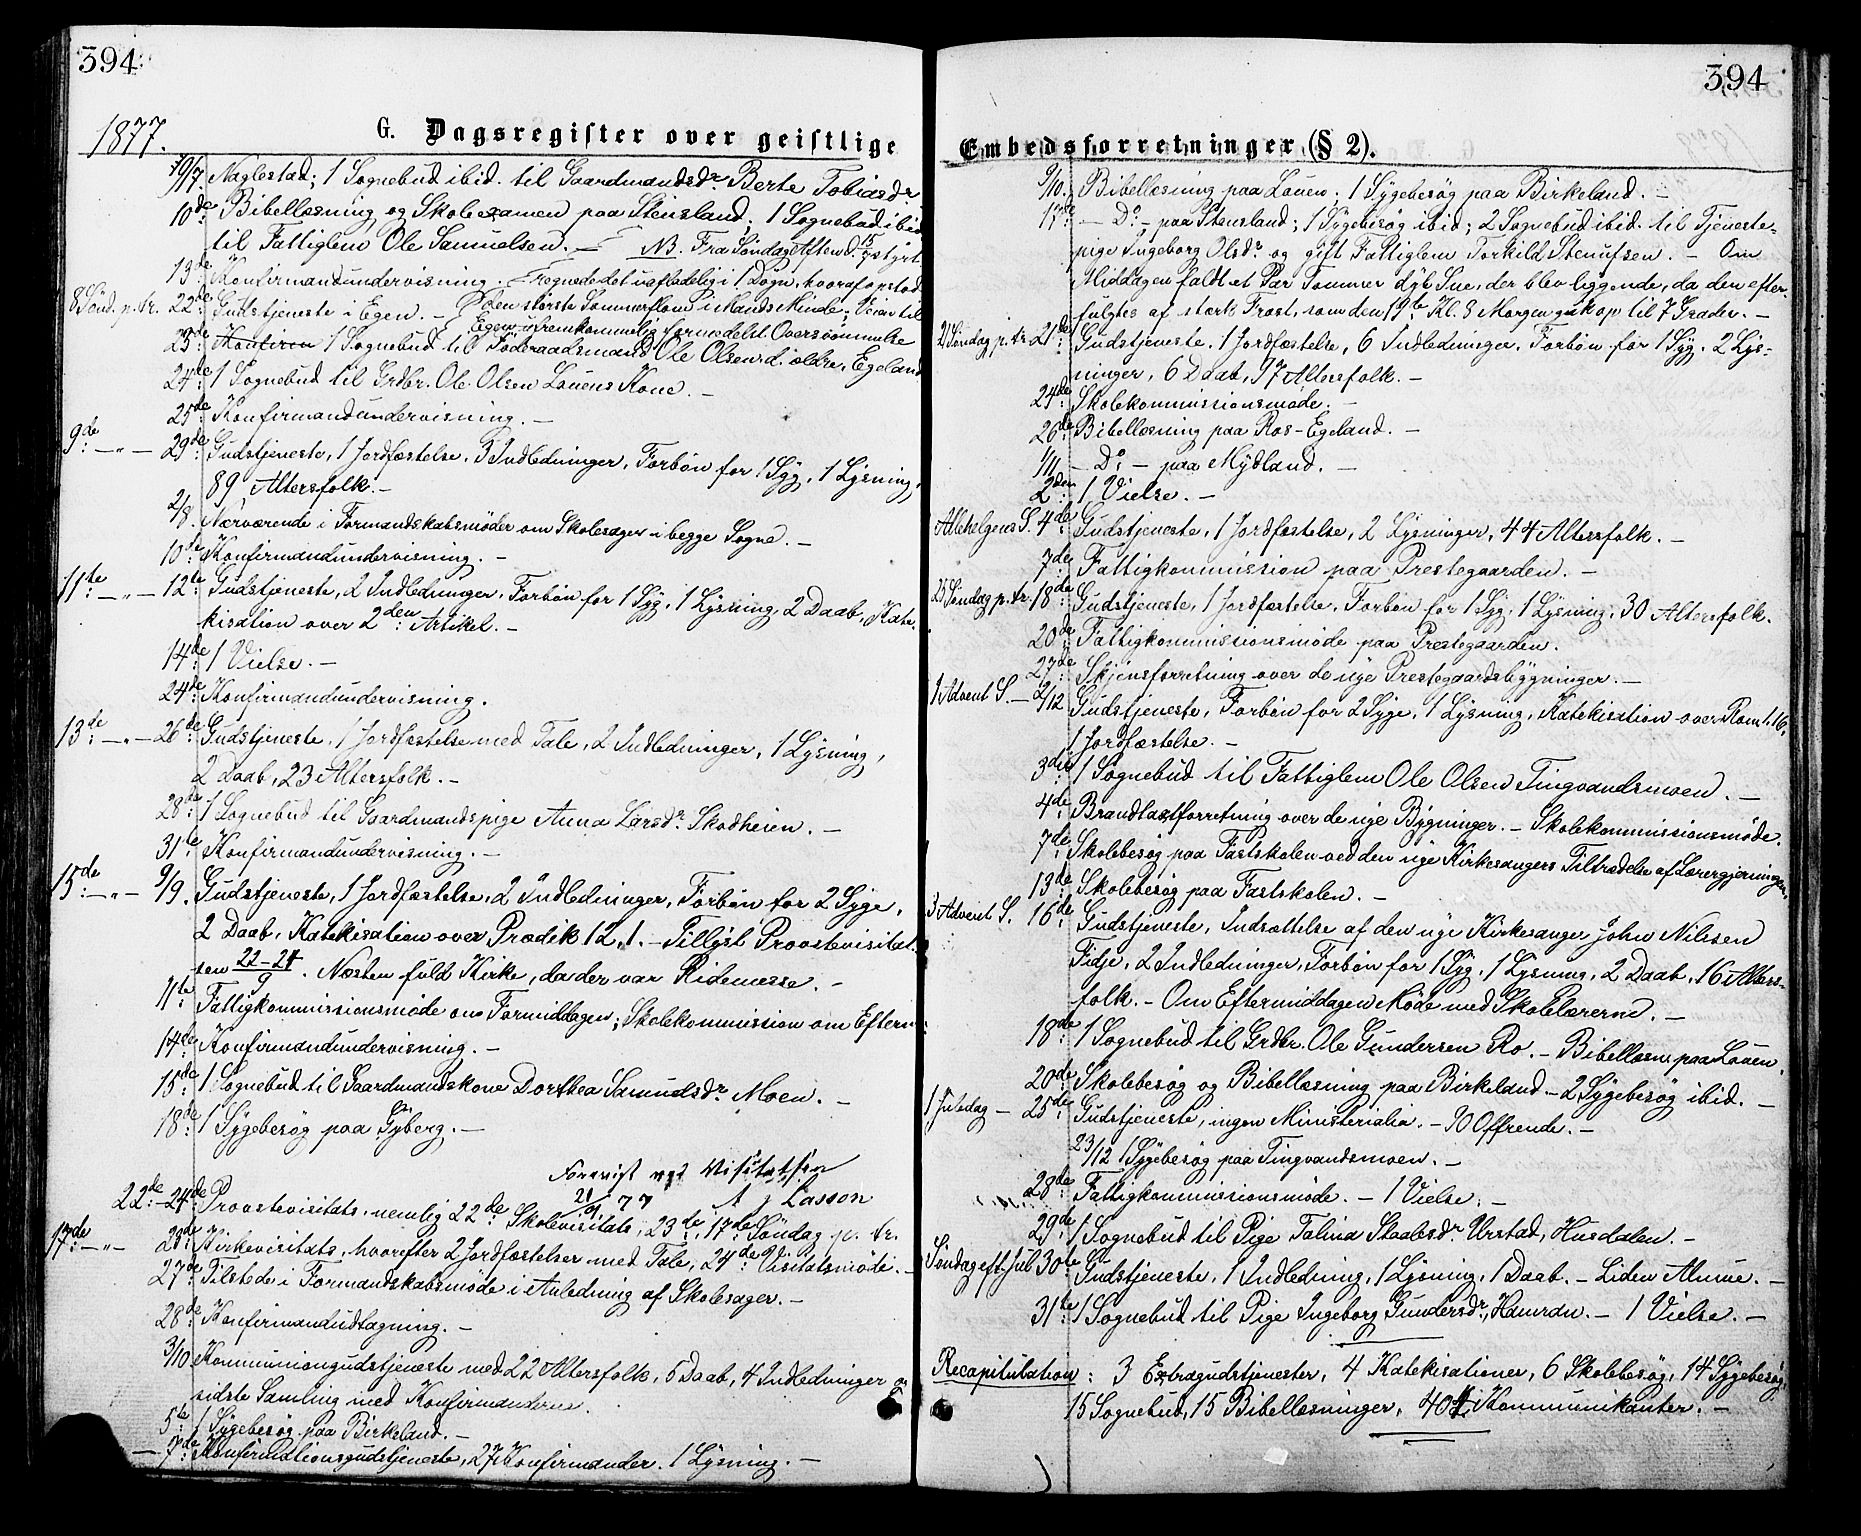 394
1877.
G. Dagsregister over geistlige
9/7. Naglestad; 1 Sognebud ibid. til Gaardmandsdr. Berte Tobiasdr.
10de Bibellæsning og Skolexamen paa Stensland; 1 Sognebud ibid
til Fattiglem Ole Samuelsen. — NB. Fra Søndag Aften d. 15/7 styrt
13de Konfirmandundervisning. — regnede det uafladelig i 1 Døgn, hvoraf opstod
8 Sønd. p. tr. 22de Gudstjeneste i Egen. — den største Sommerflom i Mands Minde; Veien til
Egen ufremkommelig formedelst Oversvømmelse
23de Konfirm 1 Sognebud til Føderaadsmand Ole Olsen d. ældre, Egeland
24de 1 Sognebud til Grdbr. Ole Olsen Lauens Kone. —
25de Konfirmandundervisning. —
9de — " — 29de Gudstjeneste, 1 Jordfæstelse, 3 Indledninger, Forbøn for 1 Syg, 1 Lysning,
89 Altersfolk. —
2/8. Nærværende i Formandskabsmøder om Skolesager i begge Sogne. —
10de Konfirmandundervisning. —
11te — " — 12te Gudstjeneste, 2 Indledninger, Forbøn for 1 Syg, 1 Lysning, 2 Daab, Kate-
kisation over 2den Artikel. —
14de 1 Vielse. —
24de Konfirmandundervisning.
13de — " — 26de Gudstjeneste, 1 Jordfæstelse med Tale, 2 Indledninger, 1 Lysning,
2 Daab, 23 Altersfolk. —
28de 1 Sognebud til Gaardmandspige Anna Larsdr. Skodheien. —
31te Konfirmandundervisning. —
15de — " — 9/9. Gudstjeneste, 1 Jordfæstelse, 2 Indledninger, Forbøn for 2 Syge,
2 Daab, Katekisation over Prædik 12,1. — Tillyst Proostevisitat-
sen 22-24/9. Næsten fuld Kirke, da der var Ridemesse. —
11te Fattigkommissionsmøde om Formiddagen; Skolekommission om Efterm.
14de Konfirmandundervisning. —
15de 1 Sognebud til Gaardmandskone Dorthea Samuelsdr. Moen. —
18de 1 Sygebesøg paa Gyberg. —
Forevist ved Visitatsen
21/9 77 A J Lasson
22de-24de Proostevisitats, nemlig 22de Skolevisitats, 23de, 17de Søndag p. tr.
17de — " — 23de Kirkevisitats, hvorefter 2 Jordfæstelser med Tale, 24de Visitatsmøde. —
27de Tilstede i Formandskabsmøde i Anledning af Skolesager. —
28de Konfirmandudtagning. —
3/10 Kommuniongudstjeneste med 22 Altersfolk, 5 Daab, 4 Indledninger og
sidste Samling med Konfirmanderne.
5te 1 Sygebesøg paa Birkeland. —
— 7de Konfirmationsgudstjeneste, 27 Konfirmander. 1 Lysning. —
394
Embedsforretninger (§ 2).
9/10. Bibellæsning paa Lauen; 1 Sygebesøg paa Birkeland. —
17de — Do — paa Stensland; 1 Sygebesøg ibid; 2 Sognebud ibid. til Tjeneste-
pige Ingeborg Olsdr. og gift Fattiglem Torkild Stenulfsen. — Om
Middagen faldt et Par Tommer dyb Sne, der blev liggende, da den efter-
fulgtes af stærk Frost, som den 19de Kl. 8 Morgen gik op til 7 Grader. —
21 Søndag p. tr. 21de Gudstjeneste. 1 Jordfæstelse, 6 Indledninger. Forbøn for 1 Syg. 2 Lys-
ninger, 6 Daab, 97 Altersfolk. —
24de Skolekommissionsmøde. —
26de Bibellæsning paa Ros-Egeland. —
1/11 — Do — paa Mydland. —
2den 1 Vielse. —
Allehelgens S. 4de Gudstjeneste, 1 Jordfæstelse, 2 Lysninger, 44 Altersfolk. —
7de Fattigkommission paa Prestegaarden. —
25 Søndag p. tr. 18de Gudstjeneste, 1 Jordfæstelse, Forbøn for 1 Syg, 1 Lysning, 30 Altersfolk.
20de Fattigkommissionsmøde paa Prestegaarden.
27de Skjønsforretning over de nye Prestegaardsbygninger. —
1 Advent S. — 2/12 Gudstjeneste, Forbøn for 2 Syge, 1 Lysning, Katekisation over Rom. 1.16,
1 Jordfæstelse. —
3die 1 Sognebud til Fattiglem Ole Olsen Tingvandsmoen. —
4de Brandtaxtforretning over de nye Bygninger. — Skolekommissionsmøde.
7de Skolebesøg paa Fastskolen ved den nye Kirkesangers Tiltrædelse af Lærergjerningen.
13de Skolebesøg paa Fastskolen. —
3 Advent S. 16de Gudstjeneste, Indsættelse af den nye Kirkesanger John Nilssen
Fidje, 2 Indledninger, Forbøn for 1 Syg, 1 Lysning, 2 Daab, 16 Alters-
folk. — Om Eftermiddagen Møde med Skolelærerne. —
18de 1 Sognebud til Grdbr. Ole Gundersen Ro. — Bibellæsn. paa Lauen.
20de Skolebesøg og Bibellæsning paa Birkeland — 2 Sygebesøg ibid. —
1 Juledag — 25de Gudstjeneste, ingen Ministerialia. — 90 Offrende. —
23/12 1 Sygebesøg paa Tingvandsmoen. —
28de Fattigkommissionsmøde. — 1 Vielse. —
29de 1 Sognebud til Pige Talina Staalesdr. Urstad, Husdalen. —
Søndag eft. Jul 30te Gudstjeneste, 1 Indledning, 1 Lysning, 1 Daab. — Liden Almue. —
31te 1 Sognebud til Pige Ingeborg Gundersdr., Hamran. — 1 Vielse. —
Recapitulation: 3 Extragudstjenester, 4 Katekisationer, 6 Skolebesøg, 14 Sygebesøg,
15 Sognebud, 15 Bibellæsninger, Kommunikanter. —